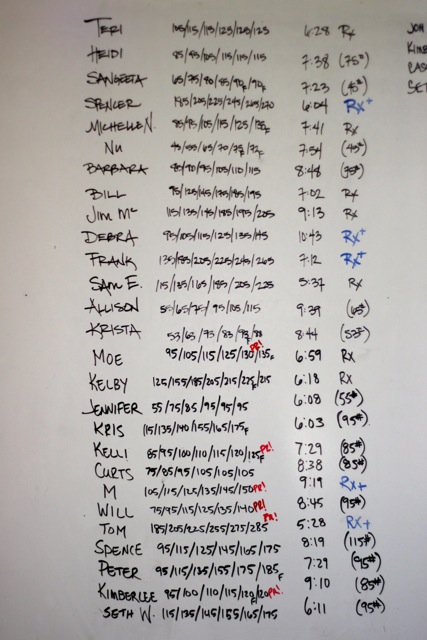 TERI 105/115/115/125/125/125 6:28 Rx
HEIDI 85/95/105/115/115/115 7:38 (75#)
SANGEETA 65/75/80/85/90F/90F 7:23 (45#)
SPENCER 195/205/225/245/265/270 6:04 Rx+
MICHELLE N. 85/95/105/115/125/135F 7:41 Rx
NU 45/55/65/70/75F/72F 7:54 (45#)
BARBARA 80/90/95/105/110/115 8:48 (75#)
BILL 95/125/145/175/185/195 7:02 Rx
JIM Mc 115/135/145/185/195/205 9:13 Rx
DEBRA 95/105/115/125/135/145 10:43 Rx+
FRANK 135/185/205/225/245/265 7:12 Rx+
SAM E. 115/135/165/185/205/225 5:37 Rx
ALLISON 55/65/75/95/105/115 9:39 (65#)
KRISTA 53/63/73/83/93F/88 8:44 (53#)
MOE 95/105/115/125/130/135F PR! 6:59 Rx
KELBY 125/155/185/205/215/225F/215 6:18 Rx
JENNIFER 55/75/85/95/95/95 6:08 (55#)
KRIS 115/135/140/155/165/175F 6:03 (95#)
KELLI 85/95/100/110/115/120/125F PR! 7:29 (85#)
CURTS 75/85/95/105/105/105 8:38 (85#)
M 105/115/125/135/145/150 PR! 9:19 Rx+
WILL 75/95/115/125/135/140 PR! 8:45 (95#)
TOM 185/205/225/255/275/285 PR! 5:28 Rx+
SPENCE 95/115/125/145/165/175 8:19 (115#)
PETER 95/115/135/155/175/185F 7:29 (95#)
KIMBERLEE 95/100/110/115/120/120 PR! 9:10 (85#)
SETH W. 115/135/145/155/165/175 6:11 (95#)
JON
KIMB
SET